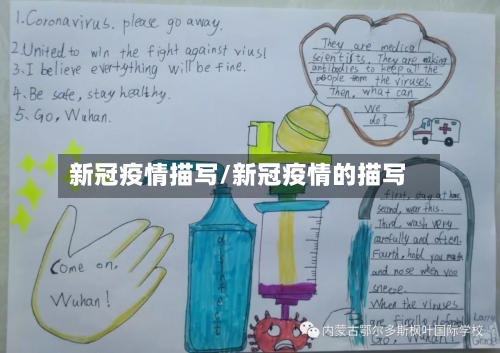 1. Coronavirus. please go away.
2. United to win the fight against viusl
3. I believe evertything will be fine.
4. Be safe, stay healthy.
5. Go, Wuhan.
They are medical
scientists. They are making
antibodies to keep all the
people from the viruses.
Then, what can
we
do?
新冠疫情描写/新冠疫情的描写
First, stay at home,
second, wear this.
Third, wash very
carefully and often.
Fourth, hold you mouth
and nose when you
sneeze.
When the viruses
are finally
Go, Wuhan!
Come on,
Wuhan!
内蒙古鄂尔多斯枫叶国际学校